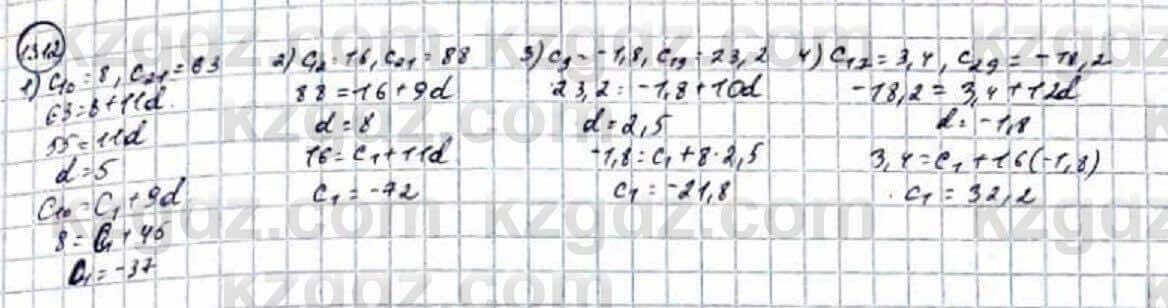 13.12
1) C₁₀ = 8, C₂₁ = 63
63 = 8 + 11d
55 = 11d
d = 5
C₁₀ = C₁ + 9d
8 = C₁ + 45
C₁ = -37
2) C₁₂ = 16, C₂₁ = 88
88 = 16 + 9d
d = 8
16 = C₁ + 11d
C₁ = -72
3) C₉ = -1,8, C₁₉ = 23,2
23,2 = -1,8 + 10d
d = 2,5
-1,8 = C₁ + 8·2,5
C₁ = -21,8
4) C₁₇ = 3,4, C₂₉ = -18,2
-18,2 = 3,4 + 12d
d = -1,8
3,4 = C₁ + 16(-1,8)
C₁ = 32,2
kzgdz.com